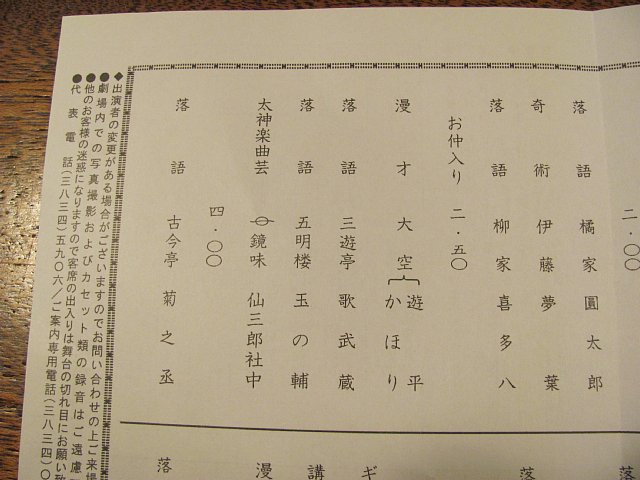 二・〇〇
落語 橘家圓太郎
奇術 伊藤夢葉
落語 柳家喜多八
お仲入り 二・五〇
漫才 大空遊平 かほり
落語 三遊亭歌武蔵
落語 五明楼玉の輔
太神楽曲芸 鏡味 仙三郎社中
四・〇〇
落語 古今亭菊之丞
落
落
ギ
講
漫
落
◆出演者の変更がある場合がございますのでお問い合わせの上ご来場
●劇場内での写真撮影およびカセット類の録音はご遠慮
●他のお客様の迷惑になりますので客席の出入りは舞台の切れ目にお願い致
●代表電話(三八三四)五九〇六/ご案内専用電話(三八三四)〇